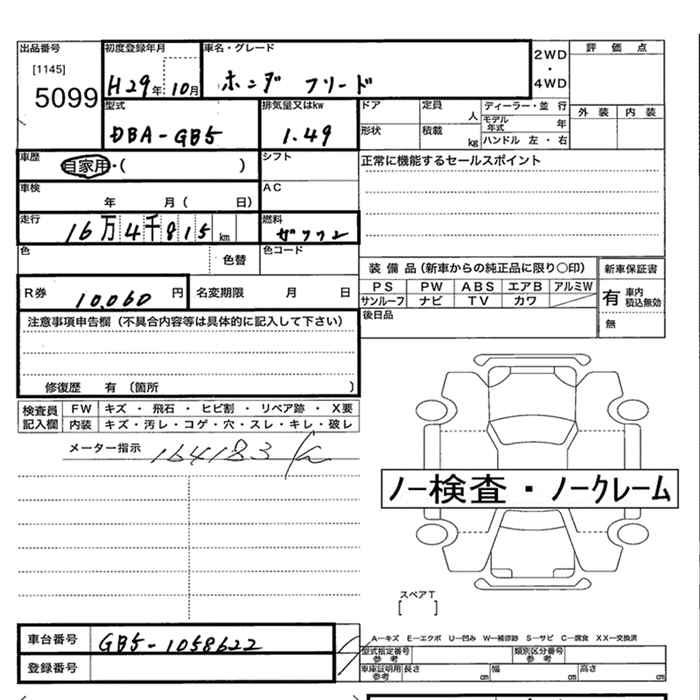 出品番号 初度登録年月 車名・グレード 2WD ・ 4WD 評価点
[1145]
5099 H29年10月 ホンダ フリード
外装 内装
型式 排気量又はkw ドア 定員 人 ディーラー・並行
DBA-GB5 1.49 形状 積載 kg モデル年式 年
ハンドル 左・右
車歴 自家用・( ) シフト 正常に機能するセールスポイント
車検 年 月( 日) AC
走行 16万4千815km 燃料 ガソリン
色 色替 色コード
装備品(新車からの純正品に限り○印) 新車保証書
R券 10,060円 名変期限 月 日
PS PW ABS エアB アルミW 有 車内積込無効
サンルーフ ナビ TV カワ
後日品 無
注意事項申告欄(不具合内容等は具体的に記入して下さい)
修復歴 有(箇所 )
検査員記入欄 FW キズ・飛石・ヒビ割・リペア跡・X要
内装 キズ・汚レ・コゲ・穴・スレ・キレ・破レ
メーター指示 164183
ノー検査・ノークレーム
スペアT
[ ]
車台番号 GB5-1058622
A―キズ E―エクボ U―凹み W―補修跡 S―サビ C―腐食 XX―交換済
型式指定番号 参考 類別区分番号 参考
登録番号 車庫証明用参考 長さ cm 幅 cm 高さ cm